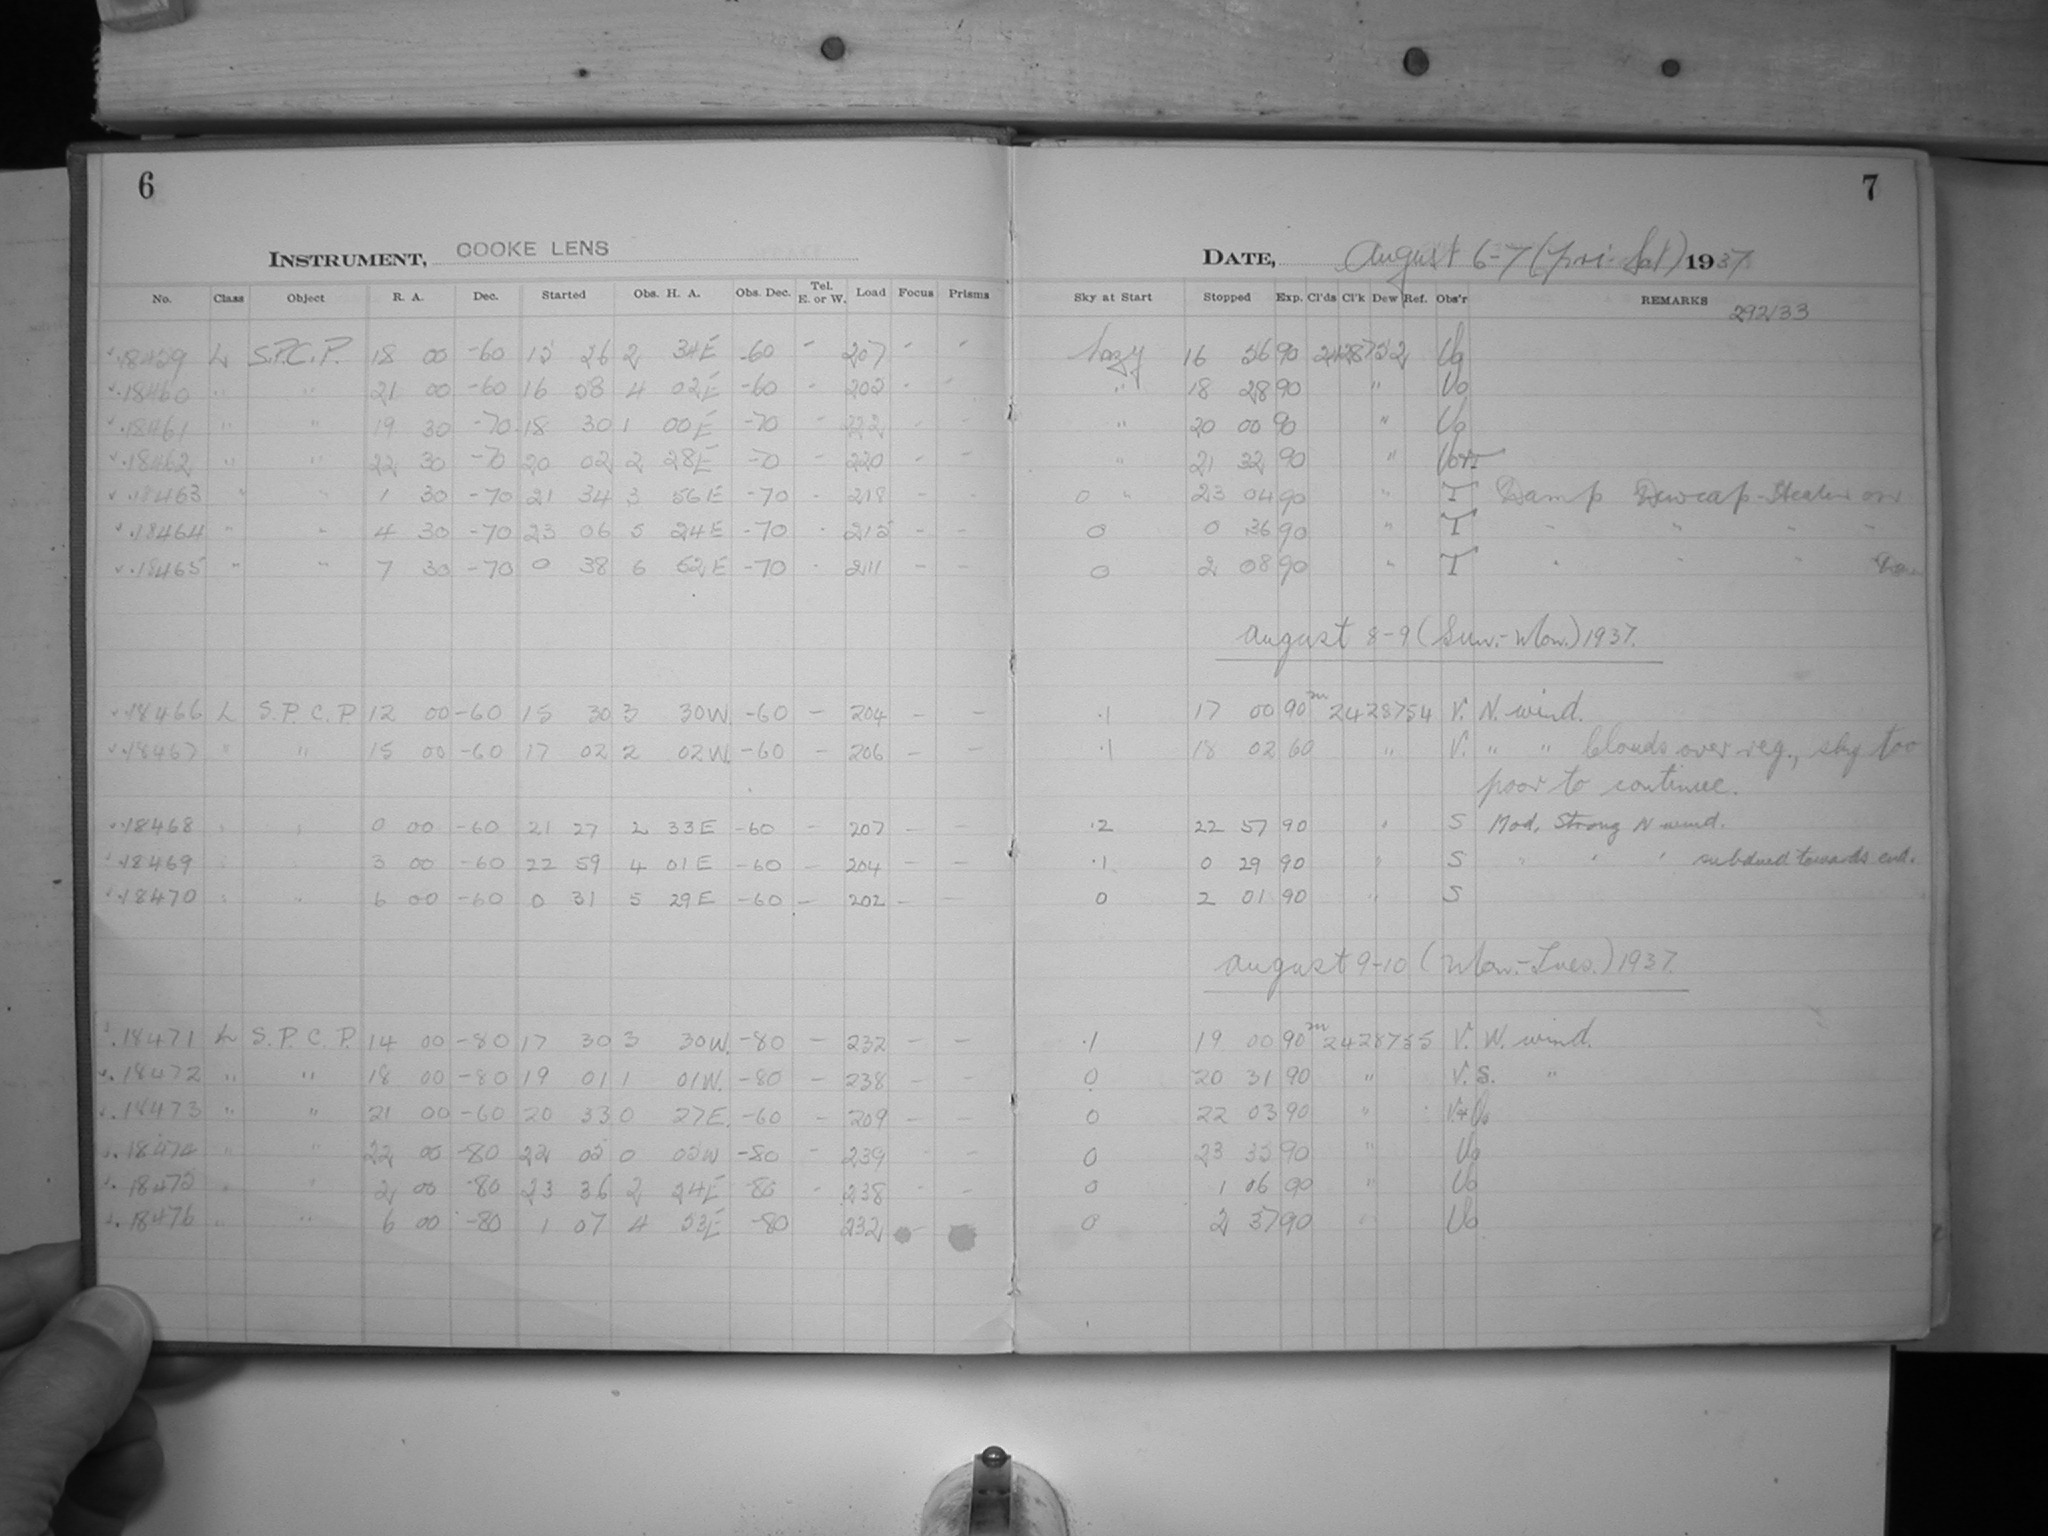 6
7
INSTRUMENT, COOKE LENS
DATE, August 6-7 (Fri-Sat) 1937
No. Class Object R. A. Dec. Started Obs. H. A. Obs. Dec. Tel. E. or W. Load Focus Prisms Sky at Start Stopped Exp. Cl'ds Cl'k Dew Ref. Obs'r REMARKS
292/33
18459 L S.P.C.P. 18 00 -60 15 26 2 34E -60 - 207 - - hazy 16 56 90 2428752 Vo
18460 " " 21 00 -60 16 58 4 02E -60 - 202 - - " 18 28 90 " Vo
18461 " " 19 30 -70 18 30 1 00E -70 - 222 - - " 20 00 90 " Vo
18462 " " 22 30 -70 20 02 2 28E -70 - 220 - - " 21 32 90 " Vo+T
18463 " " 1 30 -70 21 34 3 56E -70 - 218 - - 0 " 23 04 90 " T Damp Dewcap-Heater on
18464 " " 4 30 -70 23 06 5 24E -70 - 215 - - 0 0 36 90 " T " " " "
18465 " " 7 30 -70 0 38 6 52E -70 - 211 - - 0 2 08 90 " T " " "
August 8-9 (Sun.-Mon.) 1937.
18466 L S.P.C.P 12 00 -60 15 30 3 30W. -60 - 204 - - .1 17 00 90m 2428754 V. N. wind.
18467 " " 15 00 -60 17 02 2 02W. -60 - 206 - - .1 18 02 60 " V. " " Clouds over reg., sky too
poor to continue.
18468 " " 0 00 -60 21 27 2 33E -60 - 207 - - .2 22 57 90 " S Mod. Strong N wind.
18469 " " 3 00 -60 22 59 4 01E -60 - 204 - - .1 0 29 90 " S " " " subdued towards end.
18470 " " 6 00 -60 0 31 5 29E -60 - 202 - - 0 2 01 90 " S
August 9-10 (Mon.-Tues.) 1937.
18471 L S.P.C.P. 14 00 -80 17 30 3 30W. -80 - 232 - - .1 19 00 90m 2428755 V. W. wind.
18472 " " 18 00 -80 19 01 1 01W. -80 - 238 - - 0 20 31 90 " V.S. "
18473 " " 21 00 -60 20 33 0 27E. -60 - 209 - - 0 22 03 90 " V+Vo
18474 " " 22 00 -80 22 05 0 05W -80 - 239 - - 0 23 35 90 " Vo
18475 " " 2 00 -80 23 36 2 24E -80 - 238 - - 0 1 06 90 " Vo
18476 " " 6 00 -80 1 07 4 53E -80 232 - 0 2 37 90 " Vo